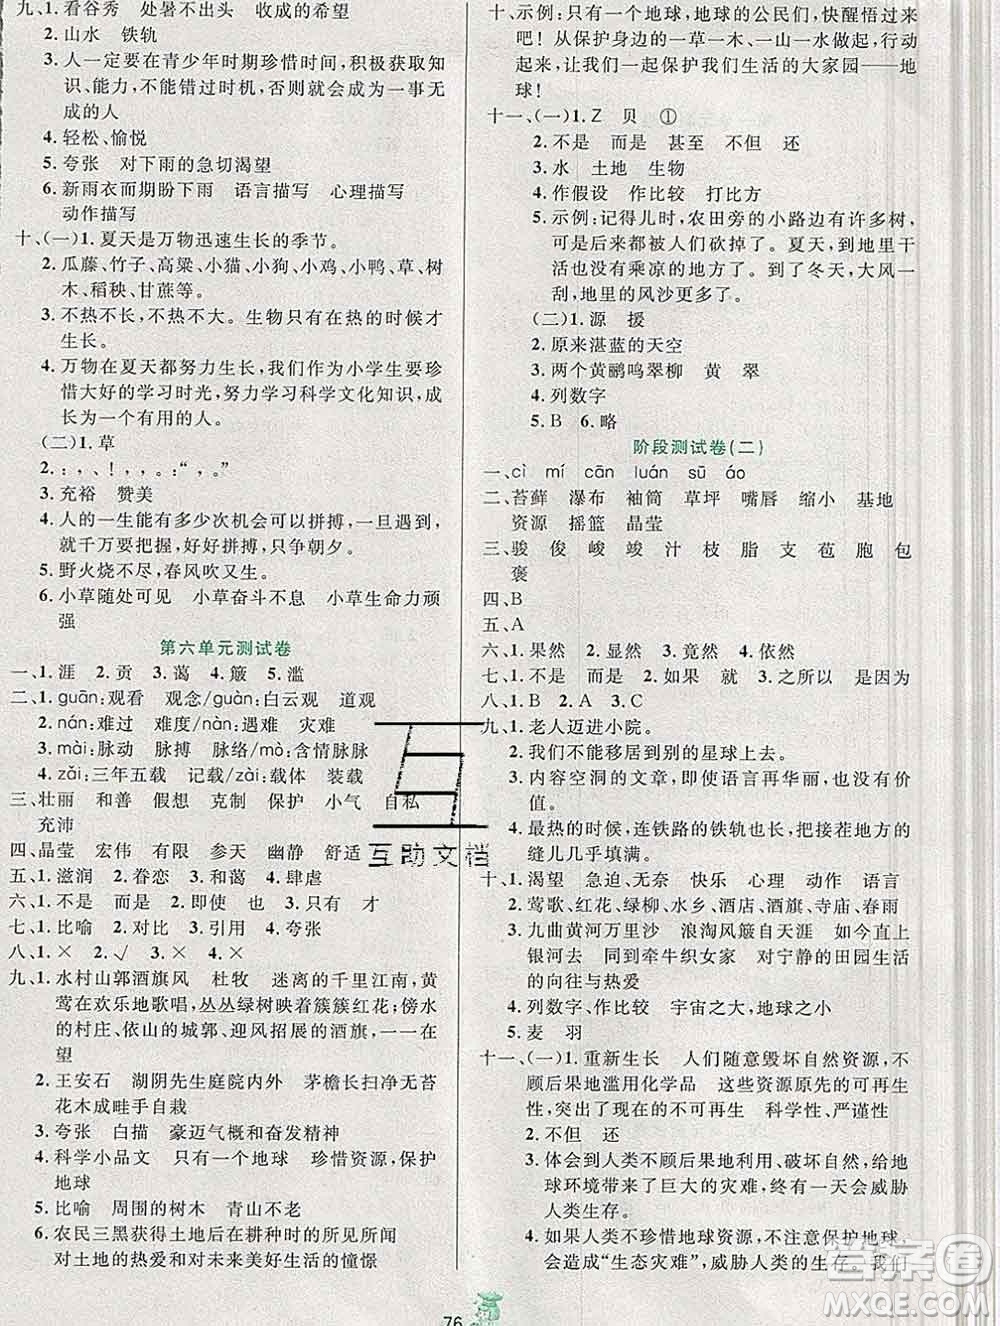 九、1. 看谷秀　处暑不出头　收成的希望
2. 山水　铁轨
3. 人一定要在青少年时期珍惜时间,积极获取知
识、能力,不能错过时机,否则将会成为一事无
成的人。
4. 轻松、愉悦
5. 夸张　对下雨的急切渴望
6. 新雨衣而期盼下雨　语言描写　心理描写
动作描写
十、(一)1. 夏天是万物迅速生长的季节。
2. 瓜藤、竹子、高粱、小猫、小狗、小鸡、小鸭、草、树
木、稻秧、甘蔗等。
3. 不热不长,不热不大。生物只有在热的时候才
生长。
4. 万物在夏天都努力生长,我们作为小学生要珍
惜大好的学习时光,努力学习科学文化知识,成
长为一个有用的人。
(二)1. 草
2. :，、！，。:“，。”
3. 充裕　赞美
4. 人的一生能有多少次机会可以拼搏,一旦遇到,
就千万要把握,好好拼搏,只争朝夕。
5. 野火烧不尽,春风吹又生。
6. 小草随处可见　小草奋斗不息　小草生命力顽
强
第六单元测试卷
一、1. 涯　2. 贡　3. 蔼　4. 簸　5. 滥
二、1. guān:观看　观念/guàn:白云观　道观
2. nán:难过　难度/nàn:遇难　灾难
3. mài:脉动　脉搏　脉络/mò:含情脉脉
4. zǎi:三年五载　记载/zài:载体　装载
三、壮丽　和善　假想　克制　保护　小气　自私
充沛
四、晶莹　宏伟　有限　参天　幽静　舒适
五、1. 滋润　2. 眷恋　3. 和蔼　4. 肆虐
六、1. 不是　而是　2. 即使　也　3. 只有　才
七、1. 比喻　2. 对比　3. 引用　4. 夸张
八、1. ×　2. √　3. ×　4. ×
九、1. 水村山郭酒旗风　杜牧　迷离的千里江南,黄
莺在欢乐地歌唱,丛丛绿树映着簇簇红花;傍水
的村庄、依山的城郭、迎风招展的酒旗,一一在
望
2. 王安石　湖阴先生庭院内外　茅檐长扫净无苔
花木成畦手自栽
3. 夸张　白描　豪迈气概和奋发精神
4. 科学小品文　只有一个地球　珍惜资源,保护
地球
5. 比喻　周围的树木　青山不老
6. 农民三黑获得土地后在耕种时的所见所闻
对土地的热爱和对未来美好生活的憧憬
76
十、示例:只有一个地球,地球的公民们,快醒悟过来
吧!从保护身边的一草一木、一山一水做起,行动
起来,让我们一起保护我们生活的大家园——地
球!
十一、(一)1. Z　贝　①
2. 不是　而是　甚至　不但　还
3. 水　土地　生物
4. 作假设　作比较　打比方
5. 示例:记得儿时,农田旁的小路边有许多树,
后来都被人们砍掉了。夏天,到地里干
活也没有乘凉的地方了。到了冬天,大风一
刮,地里的风沙更多了。
(二)1. 源　援
2. 原来湛蓝的天空
3. 两个黄鹂鸣翠柳　黄　翠
4. 列数字
5. B　6. 略
阶段测试卷(二)
一、cì　mí　cān　luán　sū　áo
二、苔藓　瀑布　袖筒　草坪　嘴唇　缩小　基地
资源　摇篮　晶莹
三、骏　俊　峻　竣　汁　枝　脂　支　苞　胞　包
褒
四、B
五、A
六、1. 果然　2. 显然　3. 竟然　4. 依然
七、1. 不是　而是　2. 如果　就　3. 之所以　是因为
八、1. B　2. A　3. C
九、1. 老人迈进小院。
2. 我们不能移居到别的星球上去。
3. 内容空洞的文章,即使语言再华丽,也没有价
值。
4. 最热的时候,连铁路的铁轨也长,把接茬地方的
缝儿几乎填满。
十、1. 渴望　急迫、无奈　快乐　心理　动作　语言
2. 莺歌、红花、绿柳、水乡、酒店、酒旗、寺庙、春雨
3. 九曲黄河万里沙　浪淘风簸自天涯　如今直上
银河去　同到牵牛织女家　对宁静的田园生活的
向往与热爱
4. 列数字、作比较　宇宙之大,地球之小
5. 麦　羽
十一、(一)1. 重新生长　人们随意毁坏自然资源,不
顾后果地滥用化学品　这些资源原先的可再生
性,突出了现在的不可再生　科学性、严谨性
2. 不但　还
3. 体会到人类不顾后果地利用、破坏自然,给地
球环境带来了巨大的灾难,终有一天会威胁
人类生存。
4. 如果人类不珍惜地球资源、不注意保护地球,
会造成“生态灾难”,威胁人类生存。我们
互助文档
答案圈
MXQE.COM